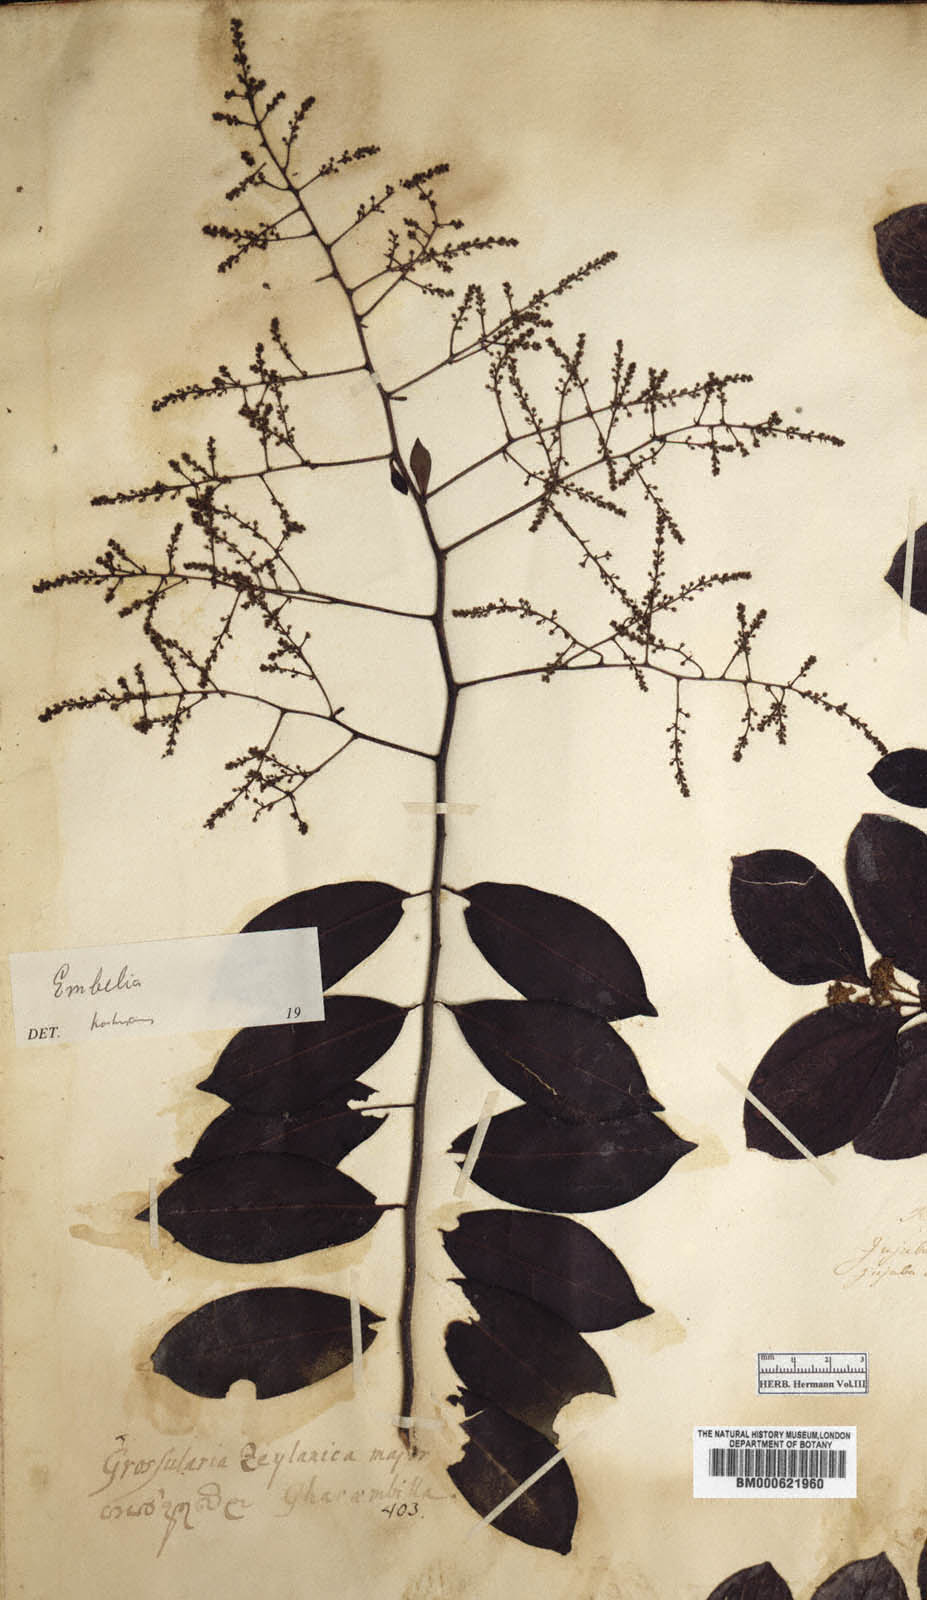 Embelia
DET.
19
Grossularia Zeylanica major
Gharæmbilla.
403.
Jujuba
mm 1 2 3
HERB. Hermann Vol.III
THE NATURAL HISTORY MUSEUM, LONDON
DEPARTMENT OF BOTANY
BM000621960